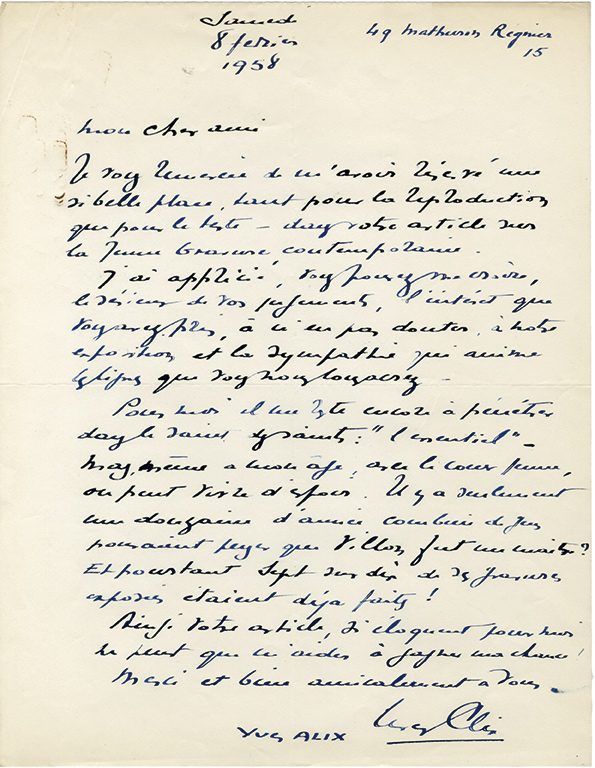 Samedi
8 février
1958
49 Mathurin Regnier
15
Mon cher ami
Je vous remercie de m'avoir réservé une
si belle place, tant pour la reproduction
que pour le texte – dans votre article sur
la Jeune Gravure contemporaine.
J'ai apprécié, vous pouvez me croire,
le sérieux de vos jugements, l'intérêt que
vous avez pris, à n'en pas douter, à notre
exposition et la sympathie qui anime
les lignes que vous nous consacrez –
Pour moi il me reste encore à pénétrer
dans le saint des saints : "l'essentiel" –
Mais même à mon âge, avec le cœur jeune,
on peut vivre d'espoir. Il y a seulement
une douzaine d'années combien de gens
pensaient que Villon fut un maître ?
Et pourtant sept sur dix de ses gravures
exposées étaient déjà faites !
Ainsi votre article, si éloquent pour moi
ne peut que m'aider à gagner ma chance !
Merci et bien amicalement à vous –
Yves Alix
YVES ALIX